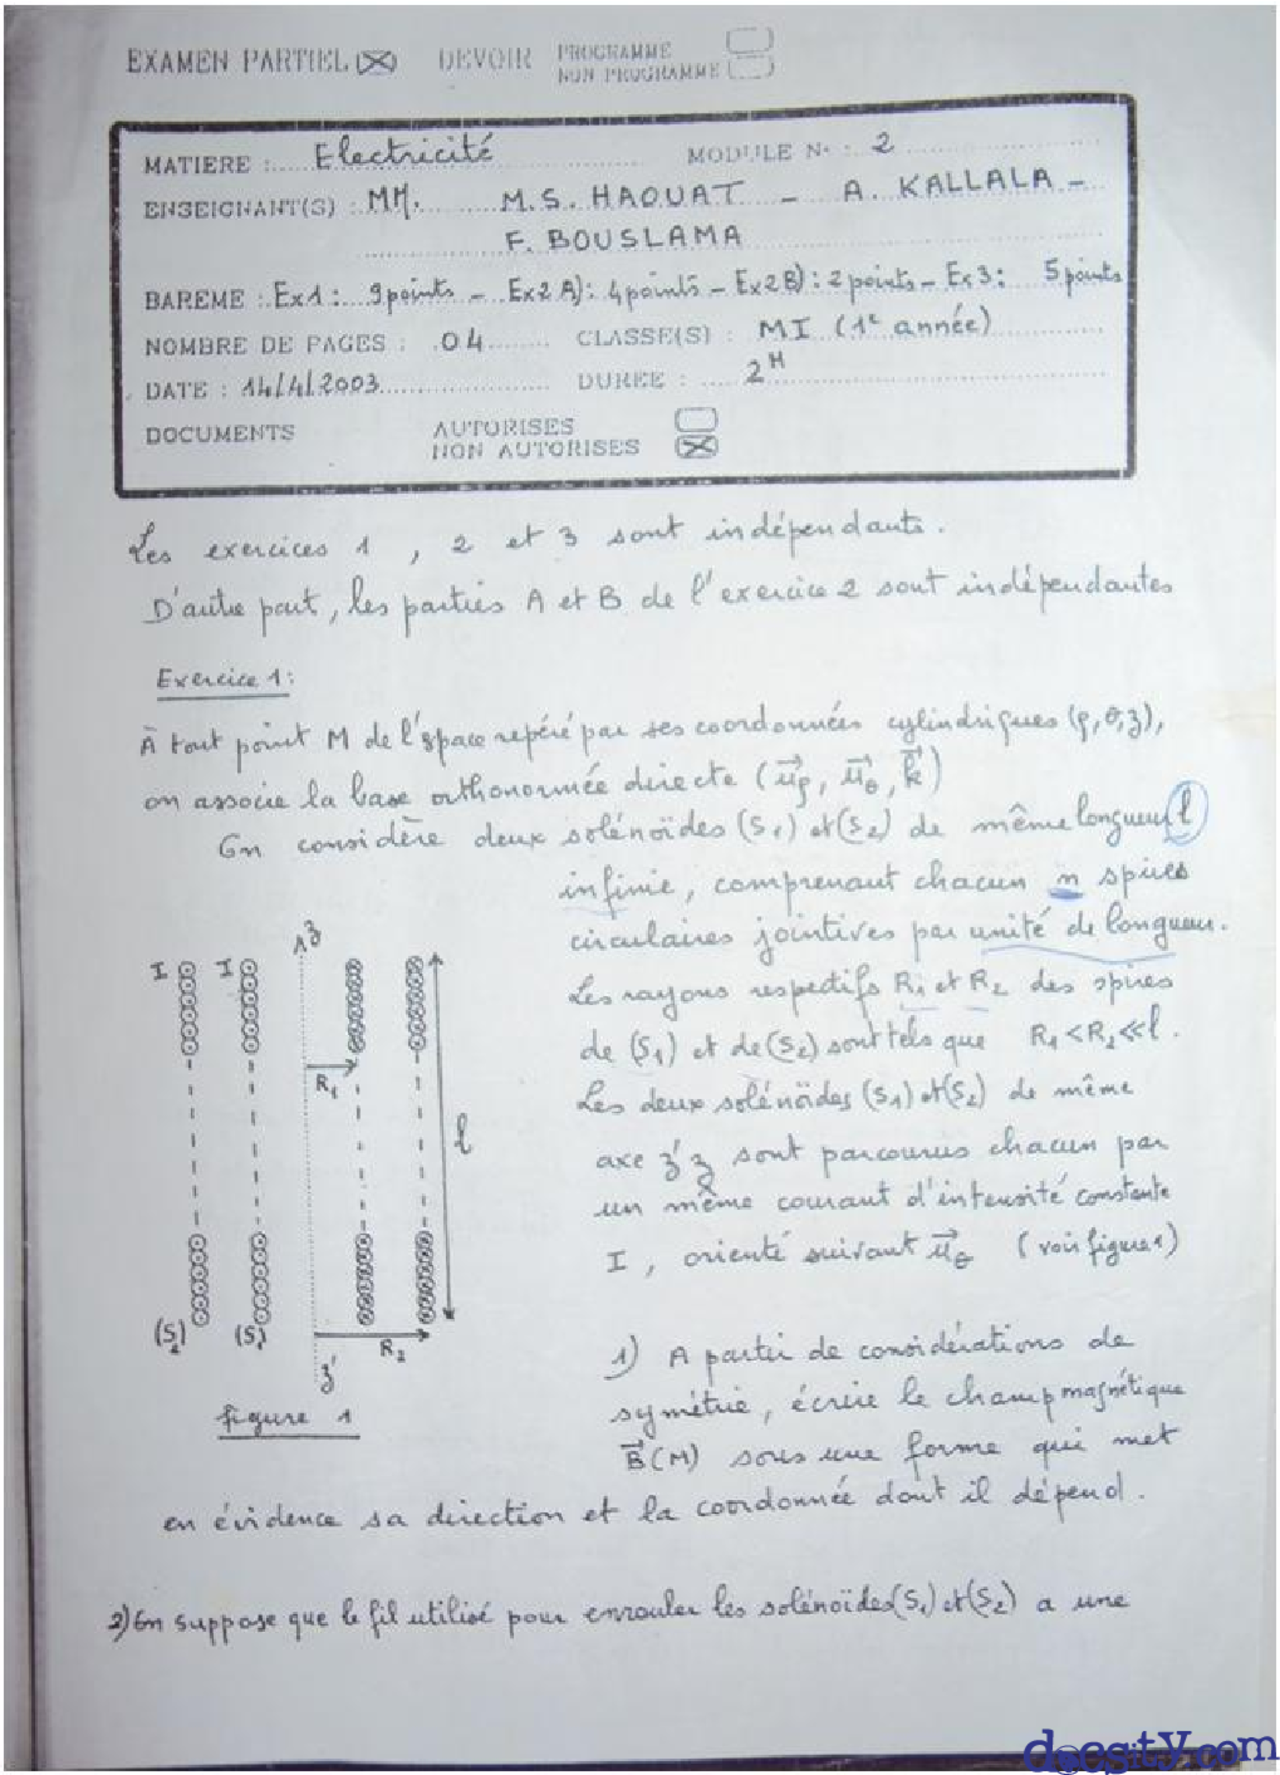 EXAMEN PARTIEL DEVOIR PROGRAMME
NON PROGRAMME
MATIERE : Electricité MODULE N° : 2
ENSEIGNANT(S) : MM. M.S. HAOUAT - A. KALLALA -
F. BOUSLAMA
BAREME : Ex1 : 9 points - Ex2 A) : 4 points - Ex2 B) : 2 points - Ex3 : 5 points
NOMBRE DE PAGES : 04 CLASSE(S) : MI (1e année)
DATE : 14/4/2003 DUREE : 2H
DOCUMENTS AUTORISES
NON AUTORISES
Les exercices 1 , 2 et 3 sont indépendants.
D'autre part, les parties A et B de l'exercice 2 sont indépendantes
Exercice 1:
À tout point M de l'space repéré par ses coordonnées cylindriques (ρ,θ,z),
on associe la base orthonormée directe (u⃗ρ, u⃗θ, k⃗)
On considère deux solénoïdes (S1) et (S2) de même longueur l
infinie, comprenant chacun n spires
circulaires jointives par unité de longueur.
Les rayons respectifs R1 et R2 des spires
de (S1) et de (S2) sont tels que R1 < R2 ≪ l .
Les deux solénoïdes (S1) et (S2) de même
axe z'z sont parcourus chacun par
un même courant d'intensité constante
I , orienté suivant u⃗θ (voir figure 1)
z
I I
R1
l
(S2) (S1) R2
z'
figure 1
1) A partir de considérations de
symétrie, écrire le champ magnétique
B⃗(M) sous une forme qui met
en évidence sa direction et la coordonnée dont il dépend.
2) On suppose que le fil utilisé pour enrouler les solénoïdes (S1) et (S2) a une
docsity.com